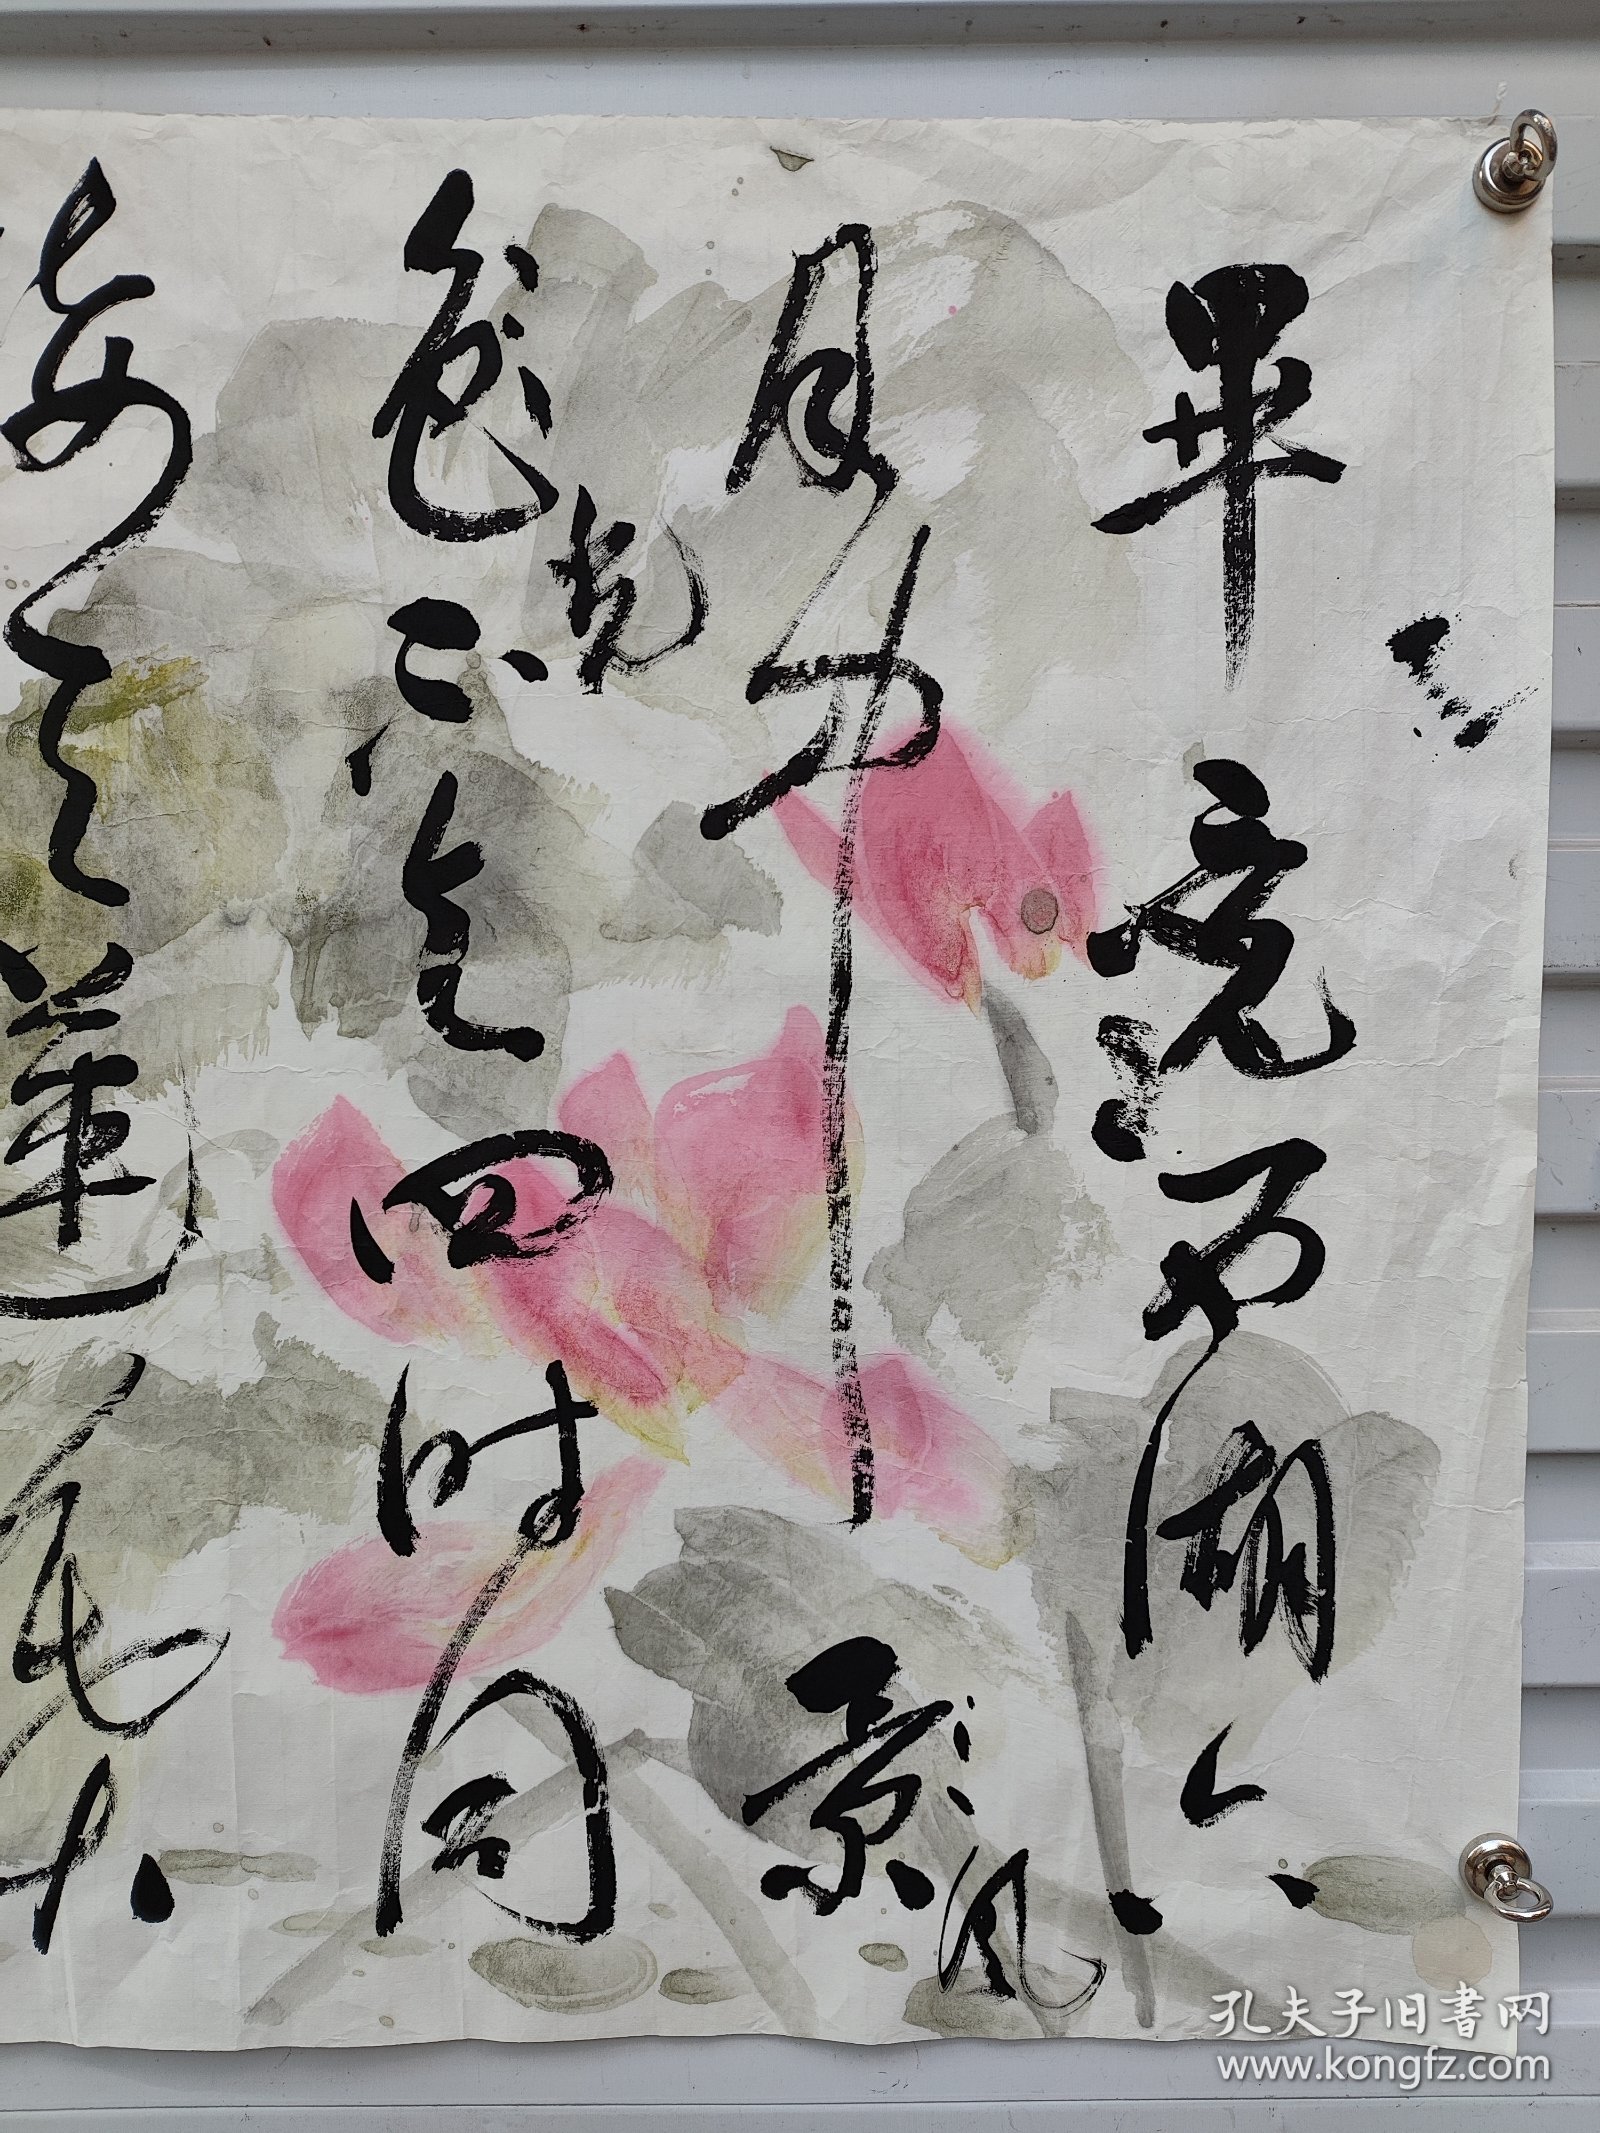 畢竟西湖六
月中景风
色光不与四时同
接天莲
孔夫子旧书网
www.kongfz.com